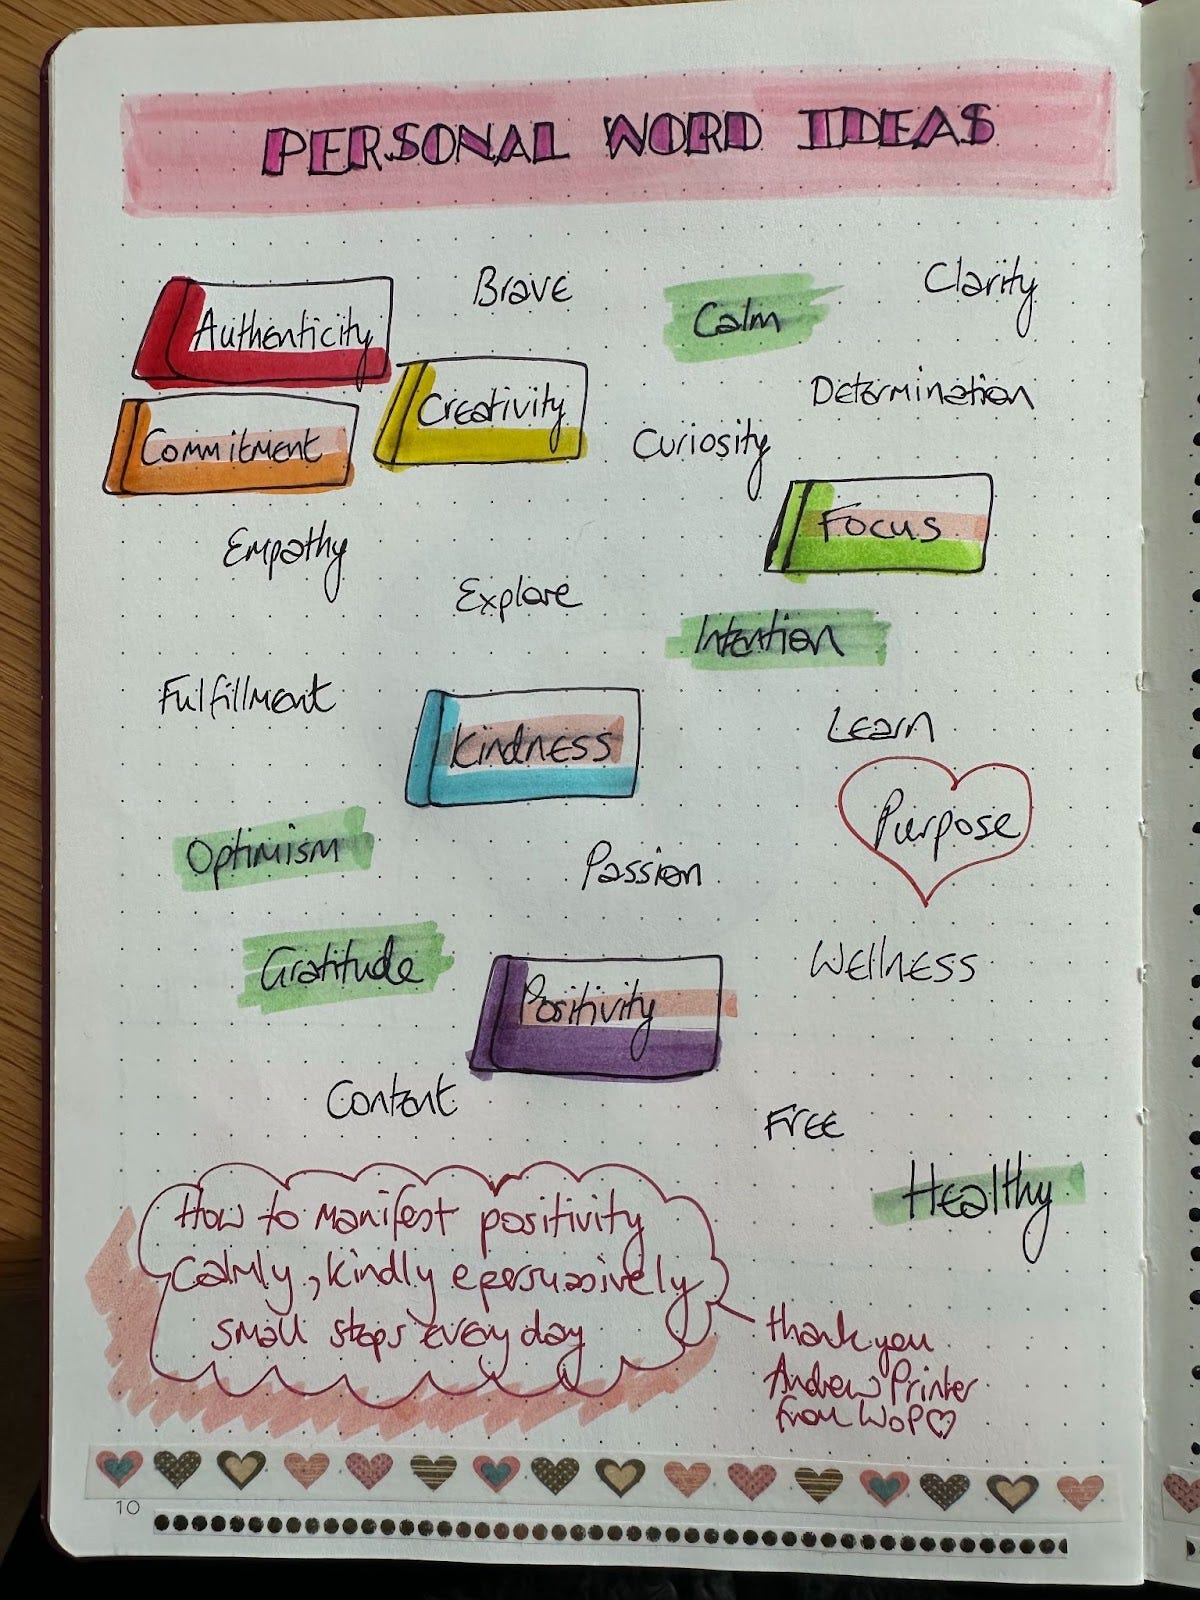 PERSONAL WORD IDEAS
Brave
Clarity
Authenticity
Calm
Creativity
Determination
Commitment
Curiosity
Focus
Empathy
Explore
Intention
Fulfillment
Learn
Kindness
Purpose
Optimism
Passion
Gratitude
Wellness
Positivity
Content
Free
Healthy
How to manifest positivity
calmly, kindly & persuasively
small steps every day
thank you
Andrew Printer
from WoP♡
10